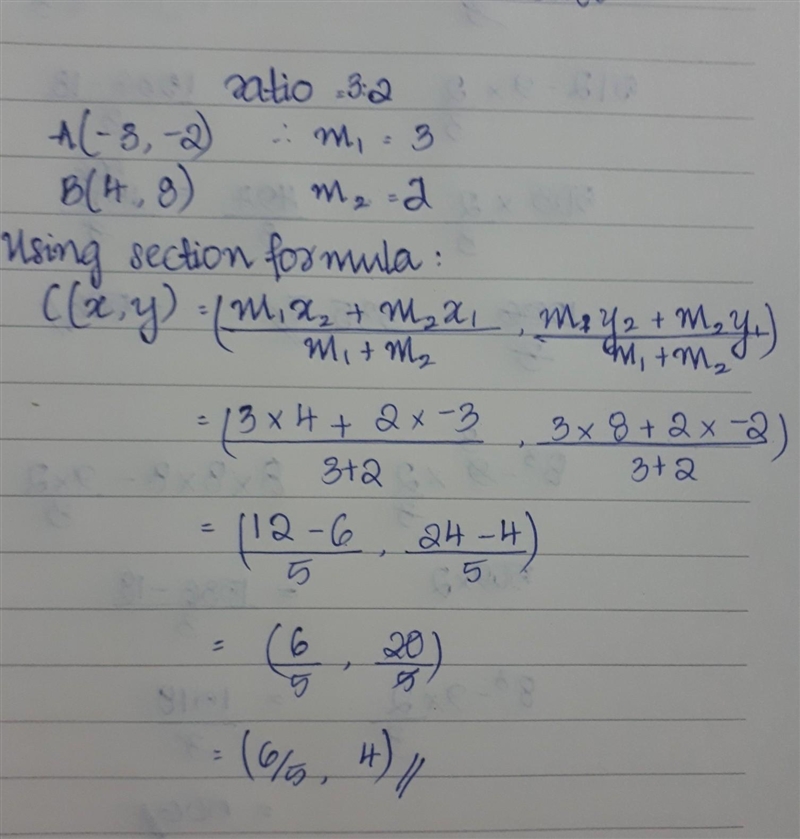 ratio = 3:2
A(-3, -2) ∴ m₁ = 3
B(4, 8) m₂ = 2
Using section formula:
C(x, y) = (m₁x₂ + m₂x₁ / m₁ + m₂ , m₁y₂ + m₂y₁ / m₁ + m₂)
= (3 × 4 + 2 × -3 / 3+2 , 3 × 8 + 2 × -2 / 3+2)
= (12 - 6 / 5 , 24 - 4 / 5)
= (6 / 5 , 20 / 5)
= (6/5 , 4) //